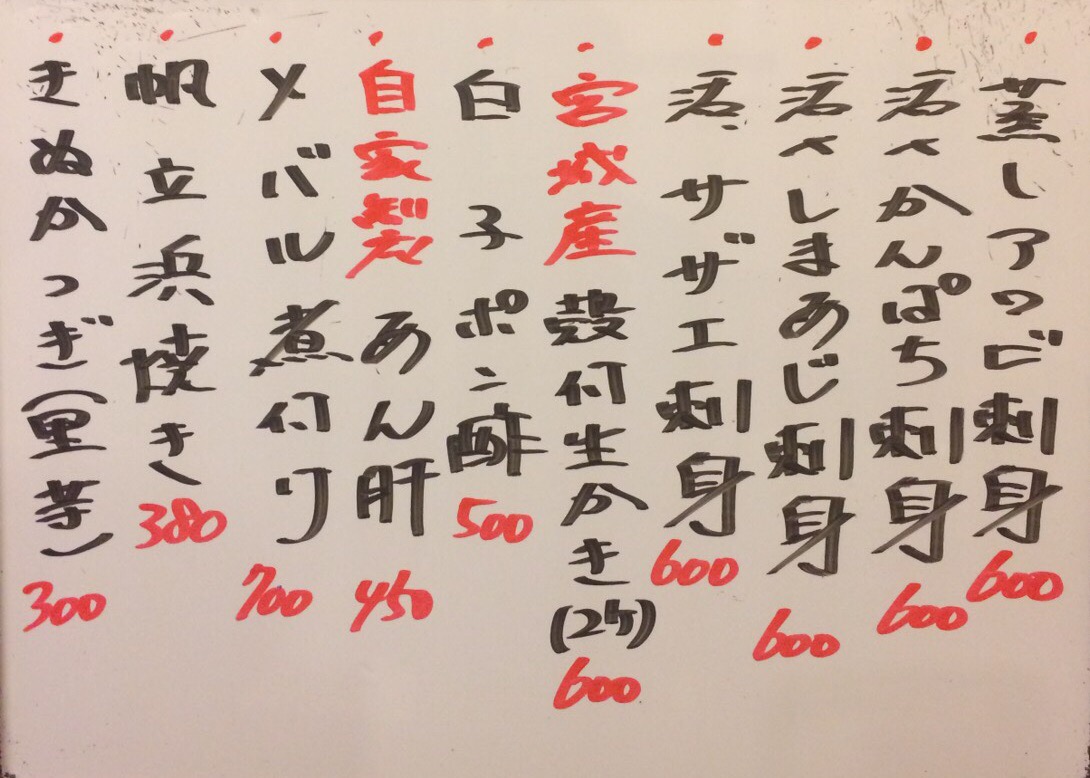 ・蒸しアワビ刺身 600
・活〆かんぱち刺身 600
・活〆しまあじ刺身 600
・活サザエ刺身 600
・宮城産 殻付生かき(2ケ) 600
・白子ポン酢 500
・自家製 あん肝 450
・メバル煮付け 700
・帆立浜焼き 380
・きぬかつぎ(里芋) 300